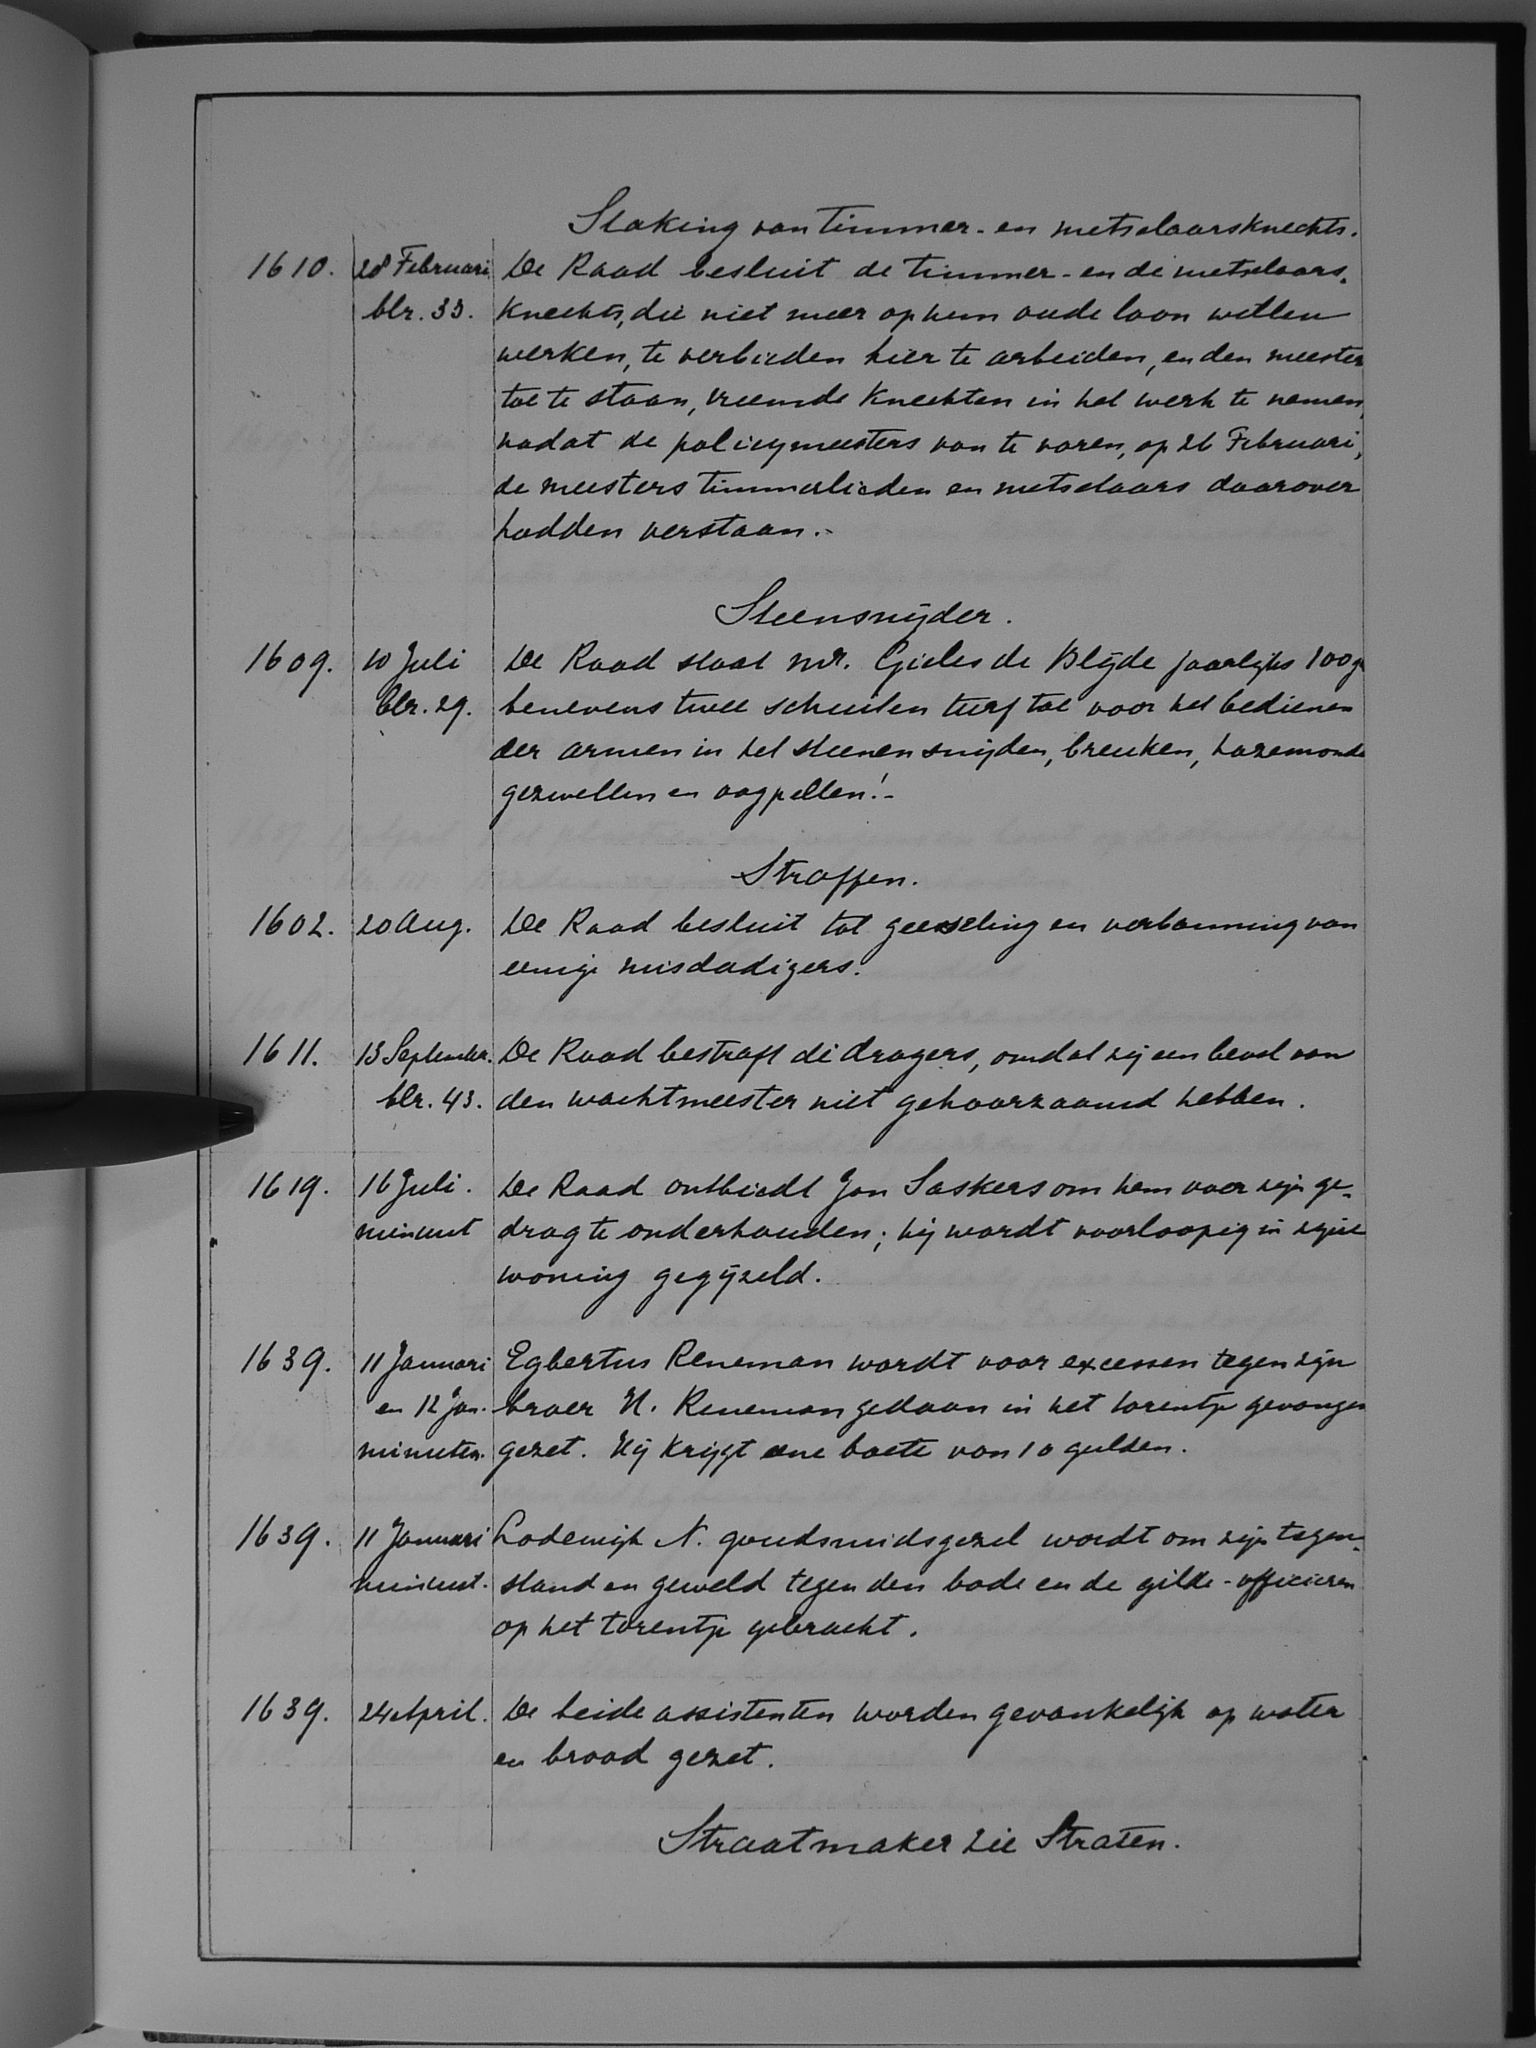 Staking van timmer- en metselaarsknechts.
1610. 28 Februari De Raad besluit de timmer- en de metselaars-
blz. 33. knechts, die niet meer op hun oude loon willen
werken, te verbieden hier te arbeiden, en den meester
toe te staan, vreemde knechten in het werk te nemen,
nadat de policymeesters van te voren, op 26 Februari,
de meesters timmerlieden en metselaars daarover
hadden verstaan.-
Steensnijder.
1609. 10 Juli De Raad staat mr. Gieles de Blijde jaarlijks 100 g
blz. 29. benevens twee schuiten turf toe voor het bedienen
der armen in het steenen snijden, breuken, hazemonde
gezwellen en oogpellen!-
Straffen.
1602. 20 Aug. De Raad besluit tot geeseling en verbanning van
eenige misdadigers.
1611. 13 September. De Raad bestraft de dragers, omdat zij een bevel van
blz. 43. den wachtmeester niet gehoorzaamd hebben.
1619. 16 Juli. De Raad ontbiedt Jan Saskers om hem over zijn ge-
minuut drag te onderhouden; hij wordt voorloopig in zijne
woning gegijzeld.
1639. 11 Januari Egbertus Reneman wordt voor excessen tegen zijn
en 12 Jan. broer H. Reneman gedaan in het torentje gevangen
minuten. gezet. Hij krijgt eene boete van 10 gulden.
1639. 11 Januari Lodewijk N. goudsmidsgezel wordt om zijn tegen-
minuut. stand en geweld tegen den bode en de gilde-officieren
op het torentje gebracht.
1639. 24 April. De beide assistenten worden gevankelijk op water
en brood gezet.
Straatmaker zie Straten.